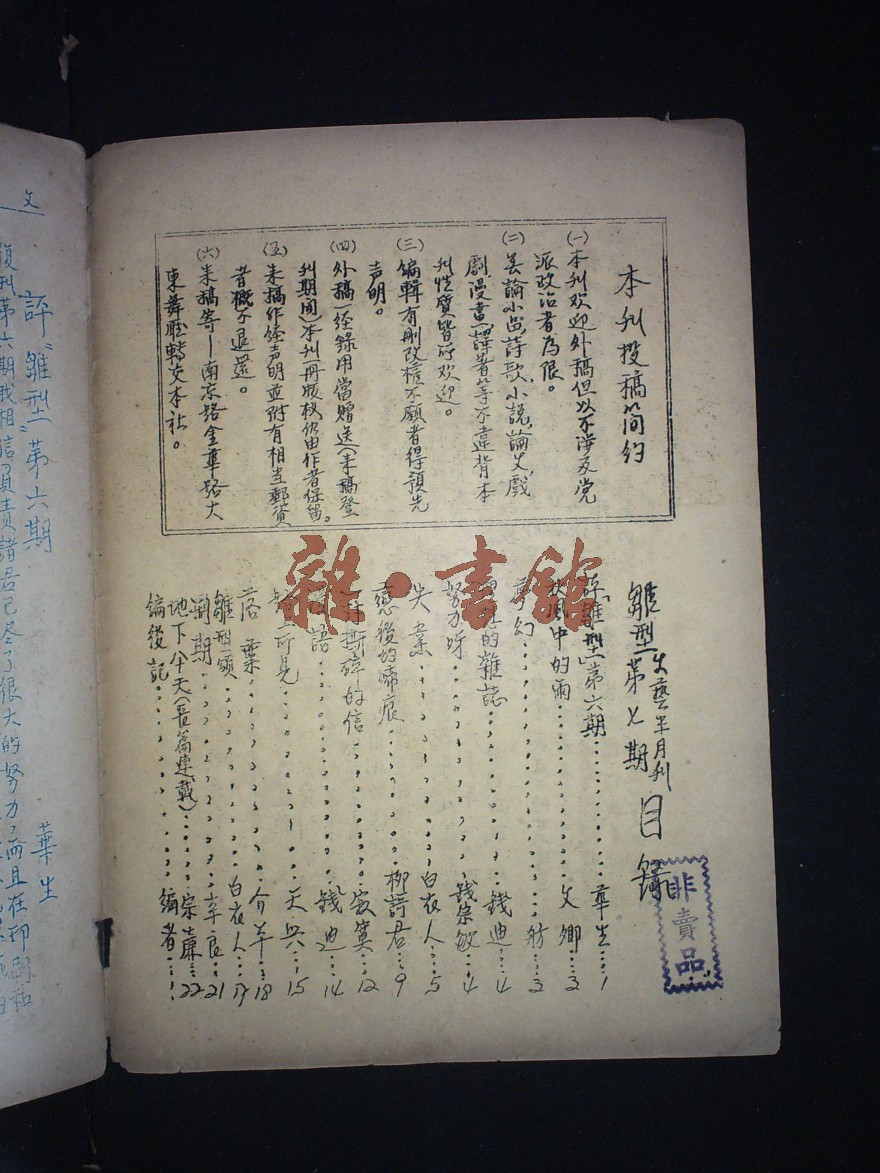 本刊投稿简约
(一)本刊欢迎外稿但以不涉及党
派政治者為限。
(二)
詩歌,小說,論文,戲
劇,漫畫,譯著等不違背本
刊性質皆所欢迎。
(三)編輯有刪改權不願者得預先
声明。
(四)外稿一经錄用當贈送(来稿登
刊期間)本刊一冊版权仍由作者保留。
(五)来稿作经声明並附有相当郵資
者概不退還。
(六)来稿寄—南京路金華路大
東舞廳轉交本社。
雛型 文藝半月刊
第七期 目錄
評「雛型」第六期 華生 1
中的雨 文卿 3
夢幻 舫 3
的雜誌 錢迪 4
努力呀 錢宗敏 4
失業 白衣人 5
戀後的啼痕 柳詩君 9
的信 寂寞 12
語 錢迪 14
所見 天兵 15
落葉 介羊 18
雛型頌 白衣人 17
期 辛良 21
地下八十天(長篇連載) 宗藨 22
编後記 编者
非賣品
雜·書館
文
評“雛型”第六期
華生
復刊第六期我相信負責諸君已尽了很大的努力,而且在印刷和